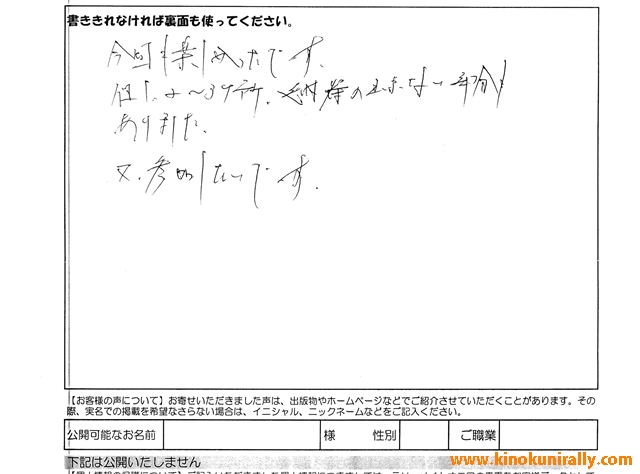 書ききれなければ裏面も使ってください。
今回も楽しめたです。
但し、2〜3ヶ所、の出来ない部分も
ありました。
又、参加したいです。
【お客様の声について】お寄せいただきました声は、出版物やホームページなどでご紹介させていただくことがあります。その
際、実名での掲載を希望なさらない場合は、イニシャル、ニックネームなどをご記入ください。
公開可能なお名前 様 性別 ご職業
下記は公開いたしません
www.kinokunirally.com